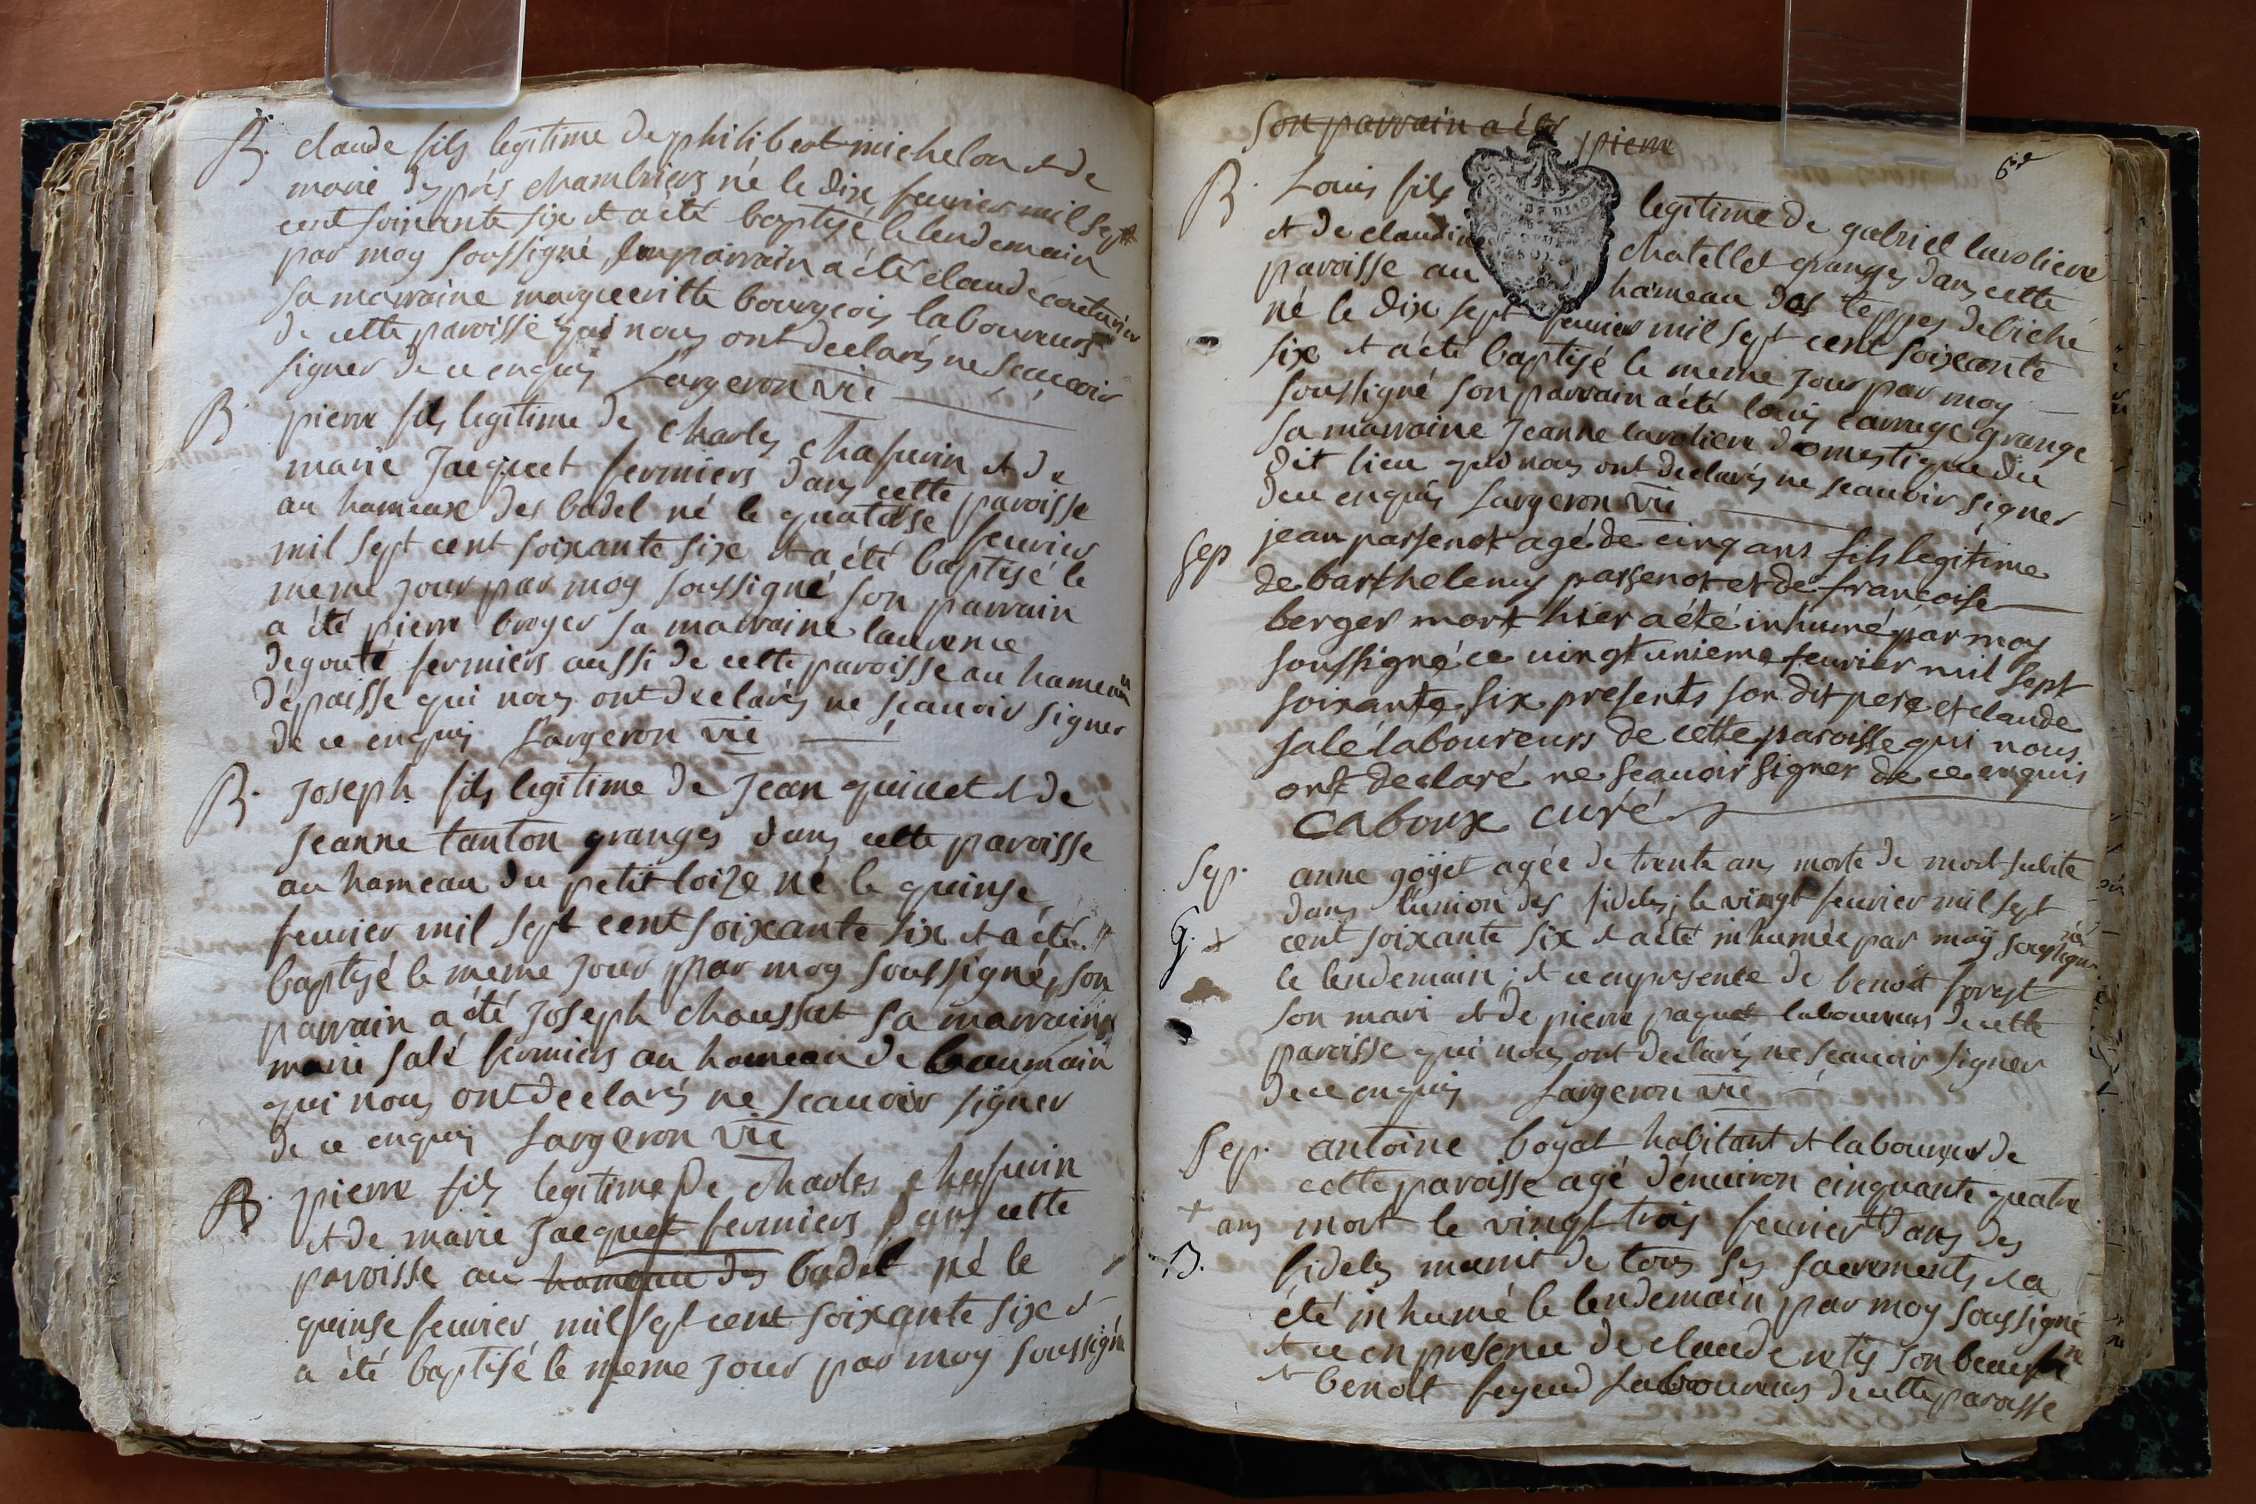 B. claude fils legitime de philibert michelon et de
marie desprès chambriers né le dix feurier mil sept
cent soixante six et a été baptisé le lendemain
par moy soussigné, son parrain a été claude couturier
sa marraine margueritte bourgeois laboureurs
de cette paroisse qui nous ont declarés ne sçauoir
signer de ce enquis Largeron vic
B pierre fils legitime de charles chafurin et de
marie jacquet fermiers dans cette paroisse
au hameaux des badel né le quatorse feurier
mil sept cent soixante six et a été baptisé le
meme jour par moy soussigné son parrain
a été pierre broyer sa marraine laurence
degouté fermiers aussi de cette paroisse au hameau
d'épaisse qui nous ont declarés ne sçauoir signer
de ce enquis Largeron vic
B. joseph fils legitime de jean guillet et de
jeanne tanton granges dans cette paroisse
au hameau du petit loize né le quinse
feurier mil sept cent soixante six et a été
baptisé le meme jour par moy soussigné, son
parrain a été joseph choussat sa marraine
marie salé fermiers au hameau de beaumain
qui nous ont declarés ne sçauoir signer
de ce enquis Largeron vic
B. pierre fils legitime de charles chafurin
et de marie jacquet fermiers dans cette
paroisse au hameau des badel né le
quinse feurier mil sept cent soixante six et
a été baptisé le meme jour par moy soussigné
son parrain a été pierre
6e
B. Louis fils legitime de gabriel lavoliere
et de claudine chatellet granges dans cette
paroisse au hameau des teppes de biche
né le dix sept feurier mil sept cent soixante
six et a été baptisé le meme jour par moy
soussigné son parrain a été louis carruge grange
sa marraine jeanne lavoliere domestique du
dit lieu qui nous ont declarés ne sçauoir signer
de ce enquis Largeron vic
sep jean passenot agé de cinq ans fils legitime
de barthelemy passenot et de françoise
berger mort hier a été inhumé par moy
soussigné ce uingt unieme feurier mil sept
soixante six presents son dit pere et claude
salé laboureurs de cette paroisse qui nous
ont declaré ne sçauoir signer de ce enquis
caboux curé
Sep. anne goyet agée de trente ans morte de mort subite
dans l'union des fideles, le vingt feurier mil sept
G. + cent soixante six et a été inhumée par moy soussigné
le lendemain; et ce en presence de benoit forest
son mari et de pierre paquet laboureurs de cette
paroisse qui nous ont declarés ne sçauoir signer
de ce enquis Largeron vic
Sep. antoine boyat habitant et laboureur de
cette paroisse agé d'enuiron cinquante quatre
+ ans mort le vingt trois feurier dans des
B. fideles munit de tous ses sacrements et a
été inhumé le lendemain par moy soussigné
et ce en presence de claude retis son beaufre
et benoit feyeud laboureurs de cette paroisse